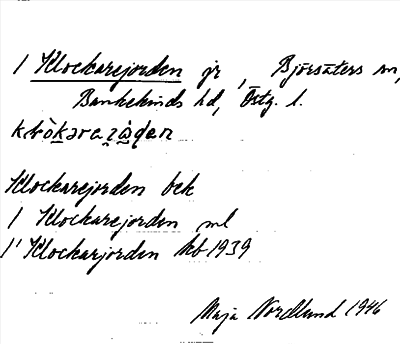 1 Klockarejorden gr, Björsäters sn,
Bankekinds hd, Östg. l.
Klockarejorden bek
1 Klockarejorden ml
1' Klockarjorden kb 1939
Maja Nordlund 1946